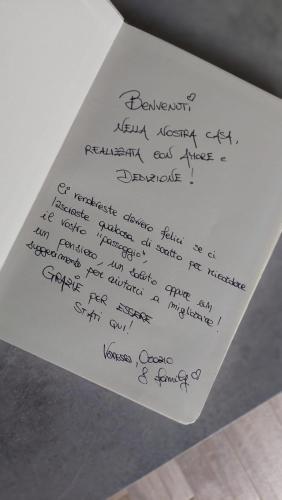 BENVENUTI
NELLA NOSTRA CASA,
REALIZZATA CON AMORE e
DEDIZIONE!
Ci rendereste davvero felici se ci
lasciaste qualcosa di scritto per ricordare
il vostro "passaggio",
un pensiero, un saluto oppure un
suggerimento per aiutarci a migliorare!
GRAZIE PER ESSERE
STATI QUI!
Vanessa,
& family